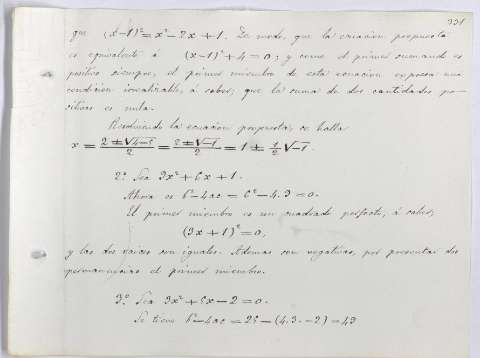 331
que (x-1)² = x² - 2x + 1. De modo, que la ecuación propuesta
es equivalente á (x-1)² + 4 = 0; y como el primer sumando es
positivo siempre, el primer miembro de esta ecuacion expresa una
condición irrealizable, á saber; que la suma de dos cantidades po-
sitivas es nula.
Resolviendo la ecuación propuesta, se halla
x = (2 ± √4-5)/2 = (2 ± √-1)/2 = 1 ± 1/2 √-1.
2º Sea 9x² + 6x + 1.
Ahora es b² - 4ac = 6² - 4.9 = 0.
El primer miembro es un cuadrado perfecto, á saber;
(3x + 1)² = 0,
y las dos raices son iguales. Ademas son negativas, por presentar dos
permanencias el primer miembro.
3º Sea 3x² + 5x - 2 = 0.
Se tiene b² - 4ac = 25 - (4.3.-2) = 49